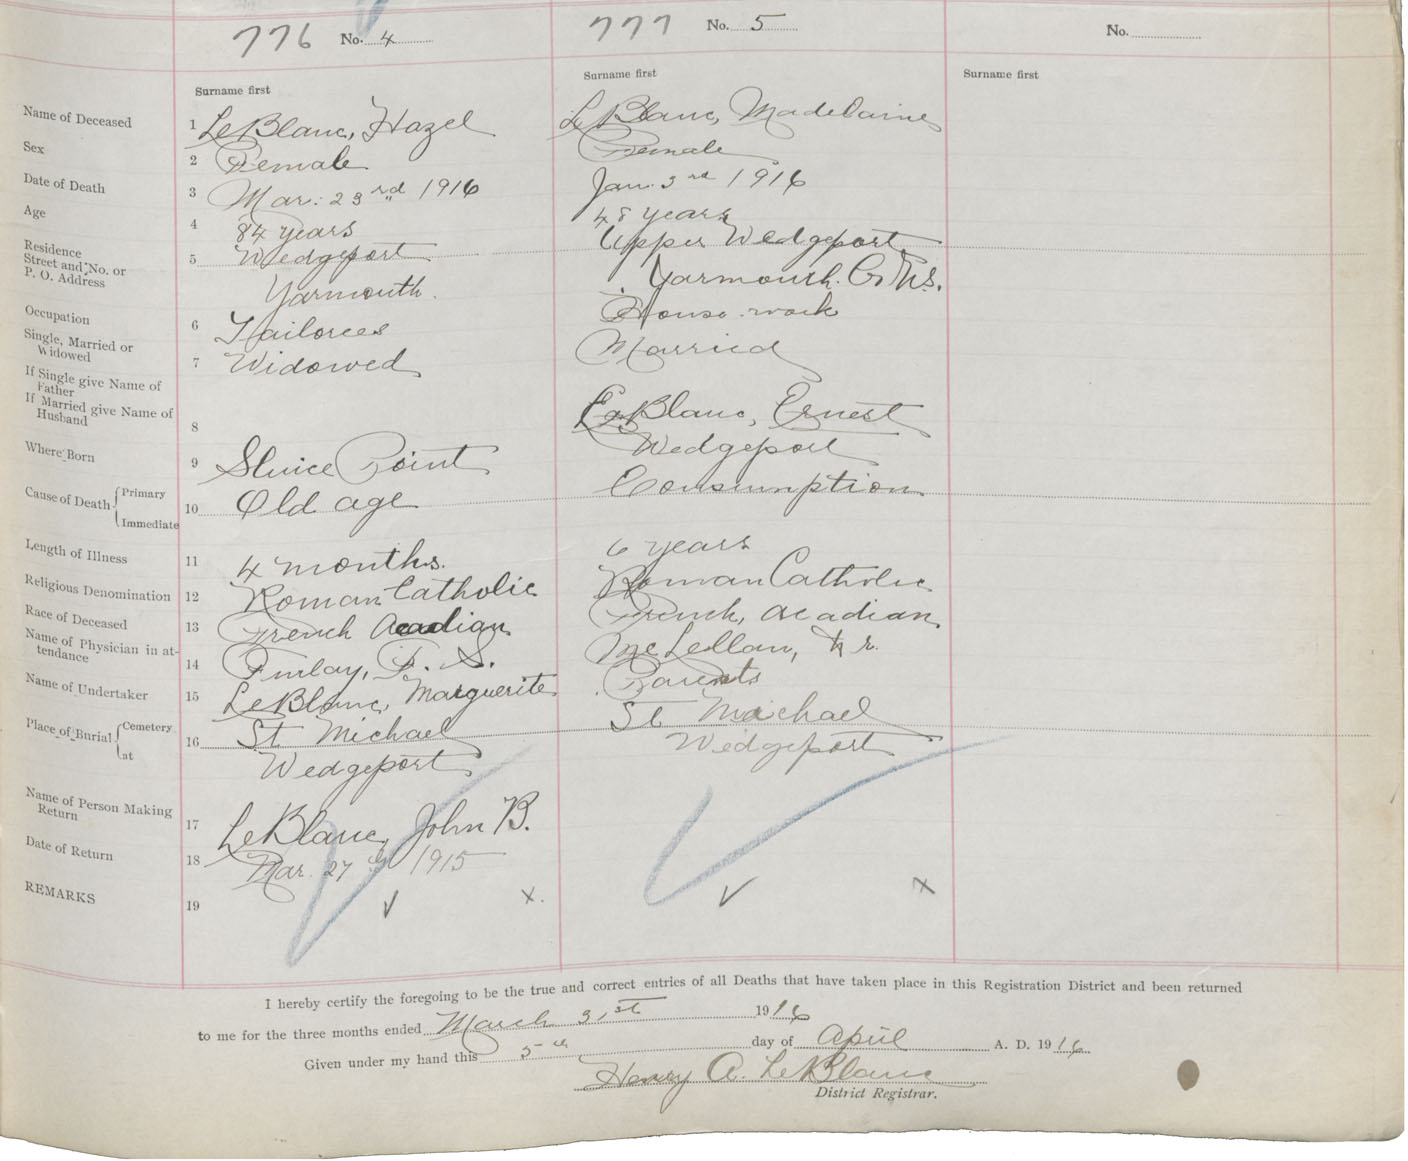 776 No. 4
777 No. 5
No.
Surname first
Surname first
Surname first
Name of Deceased 1 LeBlanc, Hazel
LeBlanc, Madelaine
Sex 2 Female
Female
Date of Death 3 Mar. 23rd 1916
Jan. 3rd 1916
Age 4 84 years
48 years
Residence
Street and No. or
P. O. Address
5 Wedgeport
Yarmouth.
Upper Wedgeport
Yarmouth. Co N.S.
Occupation 6 Tailorees
House work
Single, Married or
Widowed
7 Widowed
Married
If Single give Name of
Father
If Married give Name of
Husband
8
LeBlanc, Ernest
Where Born 9 Sluice Point
Wedgeport
Cause of Death { Primary
Immediate
10 Old age
Consumption
Length of Illness 11 4 months.
6 years
Religious Denomination 12 Roman Catholic
Roman Catholic
Race of Deceased 13 French Acadian
French, Acadian
Name of Physician in at-
tendance
14 Finlay, F. S.
McLellan,
Name of Undertaker 15 LeBlanc, Marguerite
Parents
Place of Burial { Cemetery
at
16 St Michael
Wedgeport
St Michael
Wedgeport
Name of Person Making
Return
17 LeBlanc, John B.
Date of Return 18 Mar. 27th 1915
REMARKS 19
✓ x.
✓ x
I hereby certify the foregoing to be the true and correct entries of all Deaths that have taken place in this Registration District and been returned
to me for the three months ended March 31st 1916
Given under my hand this 5th day of April A. D. 1916
Henry A. LeBlanc
District Registrar.